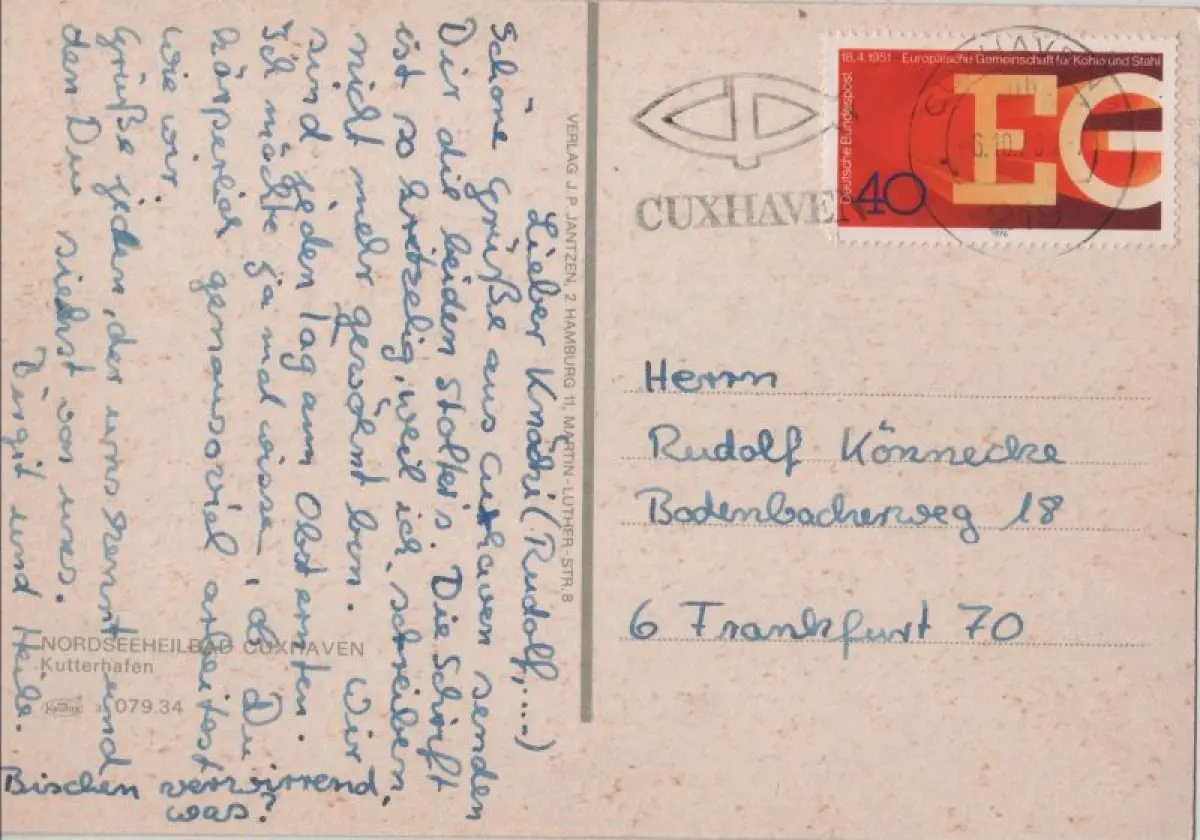 Lieber Knöchi (Rudolf,....)
Schöne Grüße aus Cuxhaven senden
Dir die beiden Stolter's. Die Schrift
ist so kritzelig, weil ich schreiben
nicht mehr gewöhnt ben. Wir
sind jeden Tag am Obst ernten.
Ich möchte ja mal wissen, ob Du
körperlich genausoviel arbeitest
wie wir.
Grüße jeden, der uns kennt und
den Du siehst von uns.
Birgit und Heile.
Bischen verwirrend,
was?
VERLAG J. P. JANTZEN, 2 HAMBURG 11, MARTIN-LUTHER-STR. 8
NORDSEEHEILBAD CUXHAVEN
Kutterhafen
079.34
CUXHAVEN
CUXHAVEN
2190
18.4.1951 Europäische Gemeinschaft für Kohle und Stahl
Deutsche Bundespost
EG
40
1976
Herrn
Rudolf Könnecke
Bodenbacherweg 18
6 Frankfurt 70